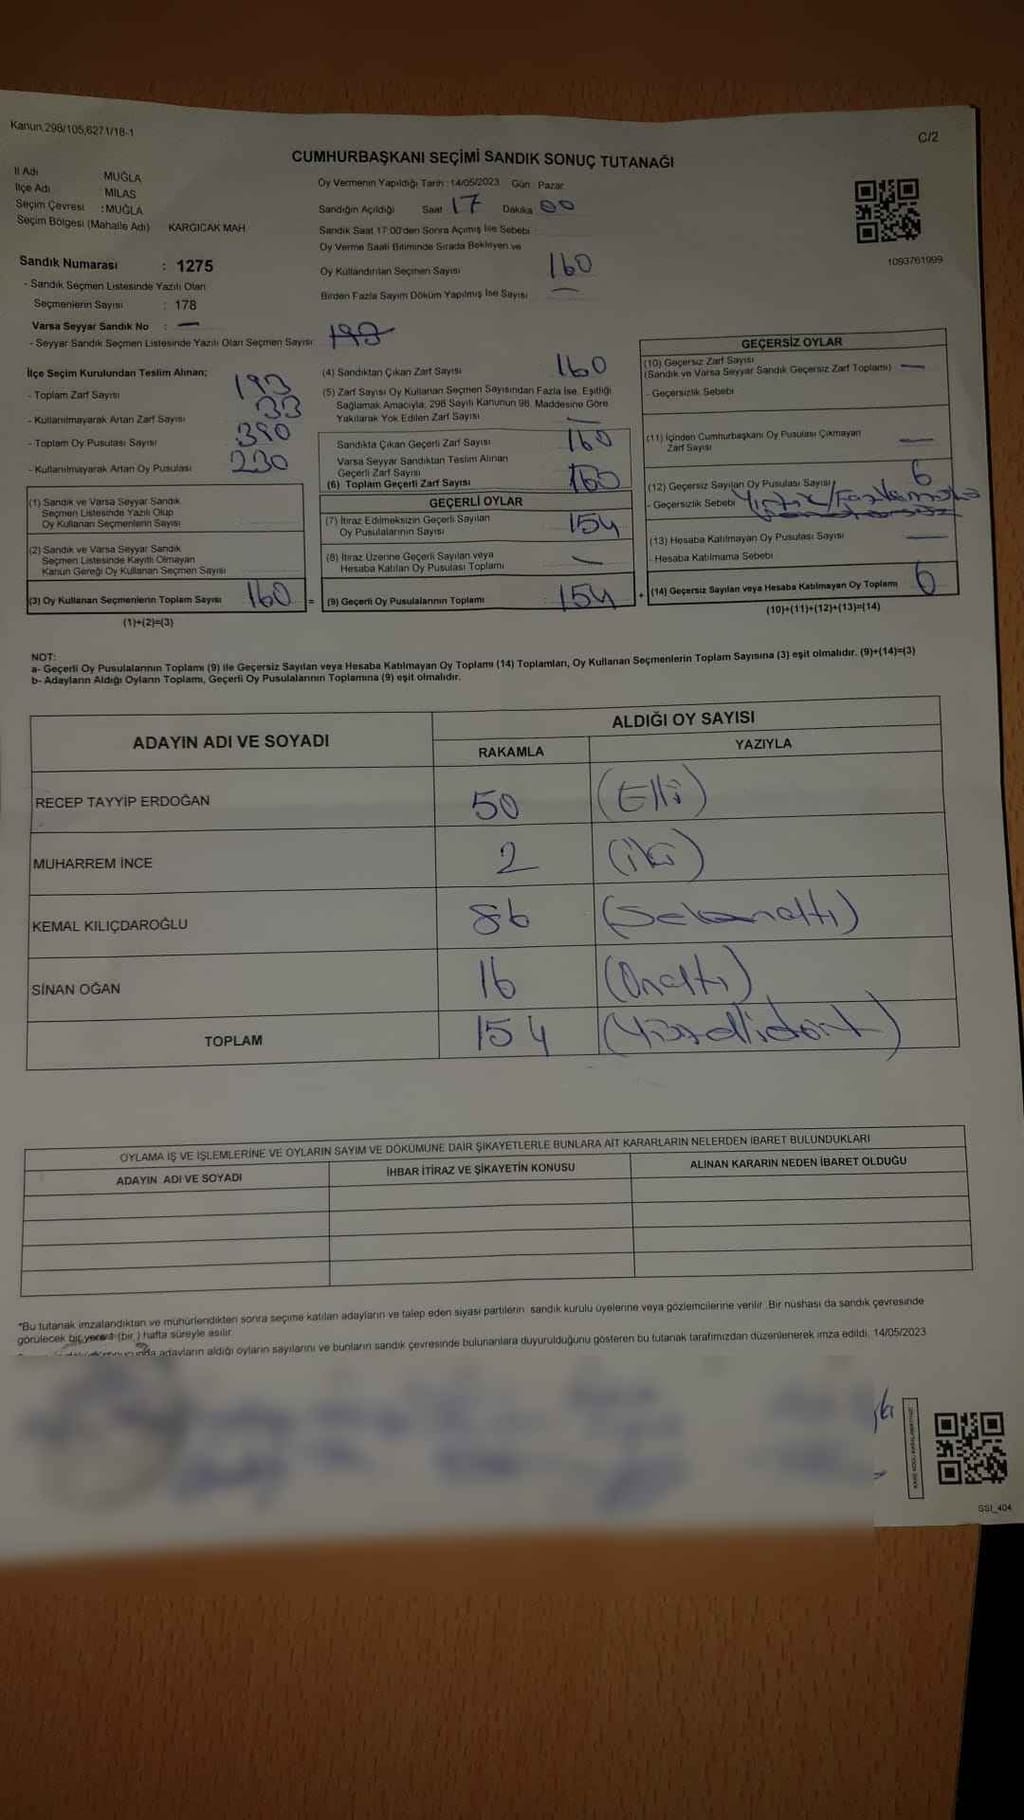 Kanun,298/105,6271/18-1
C/2
CUMHURBAŞKANI SEÇİMİ SANDIK SONUÇ TUTANAĞI
İl Adı MUĞLA
İlçe Adı MİLAS
Seçim Çevresi :MUĞLA
Seçim Bölgesi (Mahalle Adı) KARGICAK MAH.
Oy Vermenin Yapıldığı Tarih : 14/05/2023 Gün : Pazar
Sandığın Açıldığı Saat 17 Dakika 00
Sandık Saat 17:00'den Sonra Açımış İse Sebebi
Oy Verme Saati Bitiminde Sırada Bekleyen ve
Oy Kullandırılan Seçmen Sayısı 160
Birden Fazla Sayım Döküm Yapılmış İse Sayısı —
1093761999
Sandık Numarası : 1275
- Sandık Seçmen Listesinde Yazılı Olan
Seçmenlerin Sayısı : 178
Varsa Seyyar Sandık No : —
- Seyyar Sandık Seçmen Listesinde Yazılı Olan Seçmen Sayısı
İlçe Seçim Kurulundan Teslim Alınan;
- Toplam Zarf Sayısı 193
- Kullanılmayarak Artan Zarf Sayısı 33
- Toplam Oy Pusulası Sayısı 390
- Kullanılmayarak Artan Oy Pusulası 230
(1) Sandık ve Varsa Seyyar Sandık
Seçmen Listesinde Yazılı Olup
Oy Kullanan Seçmenlerin Sayısı
(2) Sandık ve Varsa Seyyar Sandık
Seçmen Listesinde Kayıtlı Olmayan
Kanun Gereği Oy Kullanan Seçmen Sayısı
(3) Oy Kullanan Seçmenlerin Toplam Sayısı 160 =
(1)+(2)=(3)
(4) Sandıktan Çıkan Zarf Sayısı 160
(5) Zarf Sayısı Oy Kullanan Seçmen Sayısından Fazla İse, Eşitliği
Sağlamak Amacıyla, 298 Sayılı Kanunun 98. Maddesine Göre
Yakılarak Yok Edilen Zarf Sayısı —
Sandıkta Çıkan Geçerli Zarf Sayısı 160
Varsa Seyyar Sandıktan Teslim Alınan
Geçerli Zarf Sayısı
(6) Toplam Geçerli Zarf Sayısı 160
GEÇERLİ OYLAR
(7) İtiraz Edilmeksizin Geçerli Sayılan
Oy Pusulalarının Sayısı 154
(8) İtiraz Üzerine Geçerli Sayılan veya
Hesaba Katılan Oy Pusulası Toplamı —
(9) Geçerli Oy Pusulalarının Toplamı 154 +
GEÇERSİZ OYLAR
(10) Geçersiz Zarf Sayısı
(Sandık ve Varsa Seyyar Sandık Geçersiz Zarf Toplamı) —
- Geçersizlik Sebebi
(11) İçinden Cumhurbaşkanı Oy Pusulası Çıkmayan
Zarf Sayısı —
(12) Geçersiz Sayılan Oy Pusulası Sayısı 6
- Geçersizlik Sebebi Yırtık/Fazla
(13) Hesaba Katılmayan Oy Pusulası Sayısı —
- Hesaba Katılmama Sebebi
(14) Geçersiz Sayılan veya Hesaba Katılmayan Oy Toplamı 6
(10)+(11)+(12)+(13)=(14)
NOT:
a- Geçerli Oy Pusulalarının Toplamı (9) ile Geçersiz Sayılan veya Hesaba Katılmayan Oy Toplamı (14) Toplamları, Oy Kullanan Seçmenlerin Toplam Sayısına (3) eşit olmalıdır. (9)+(14)=(3)
b- Adayların Aldığı Oyların Toplamı, Geçerli Oy Pusulalarının Toplamına (9) eşit olmalıdır.
ADAYIN ADI VE SOYADI
ALDIĞI OY SAYISI
RAKAMLA YAZIYLA
RECEP TAYYİP ERDOĞAN 50 (Elli)
MUHARREM İNCE 2 (iki)
KEMAL KILIÇDAROĞLU 86 (Seksenaltı)
SİNAN OĞAN 16 (Onaltı)
TOPLAM 154 (Yüzellidört)
OYLAMA İŞ VE İŞLEMLERİNE VE OYLARIN SAYIM VE DÖKÜMÜNE DAİR ŞİKAYETLERLE BUNLARA AİT KARARLARIN NELERDEN İBARET BULUNDUKLARI
ADAYIN ADI VE SOYADI İHBAR İTİRAZ VE ŞİKAYETİN KONUSU ALINAN KARARIN NEDEN İBARET OLDUĞU
*Bu tutanak imzalandıktan ve mühürlendikten sonra seçime katılan adayların ve talep eden siyasi partilerin sandık kurulu üyelerine veya gözlemcilerine verilir. Bir nüshası da sandık çevresinde
görülecek bir yere (bir) hafta süreyle asılır.
adayların aldığı oyların sayılarını ve bunların sandık çevresinde bulunanlara duyurulduğunu gösteren bu tutanak tarafımızdan düzenlenerek imza edildi. 14/05/2023
SSI_404